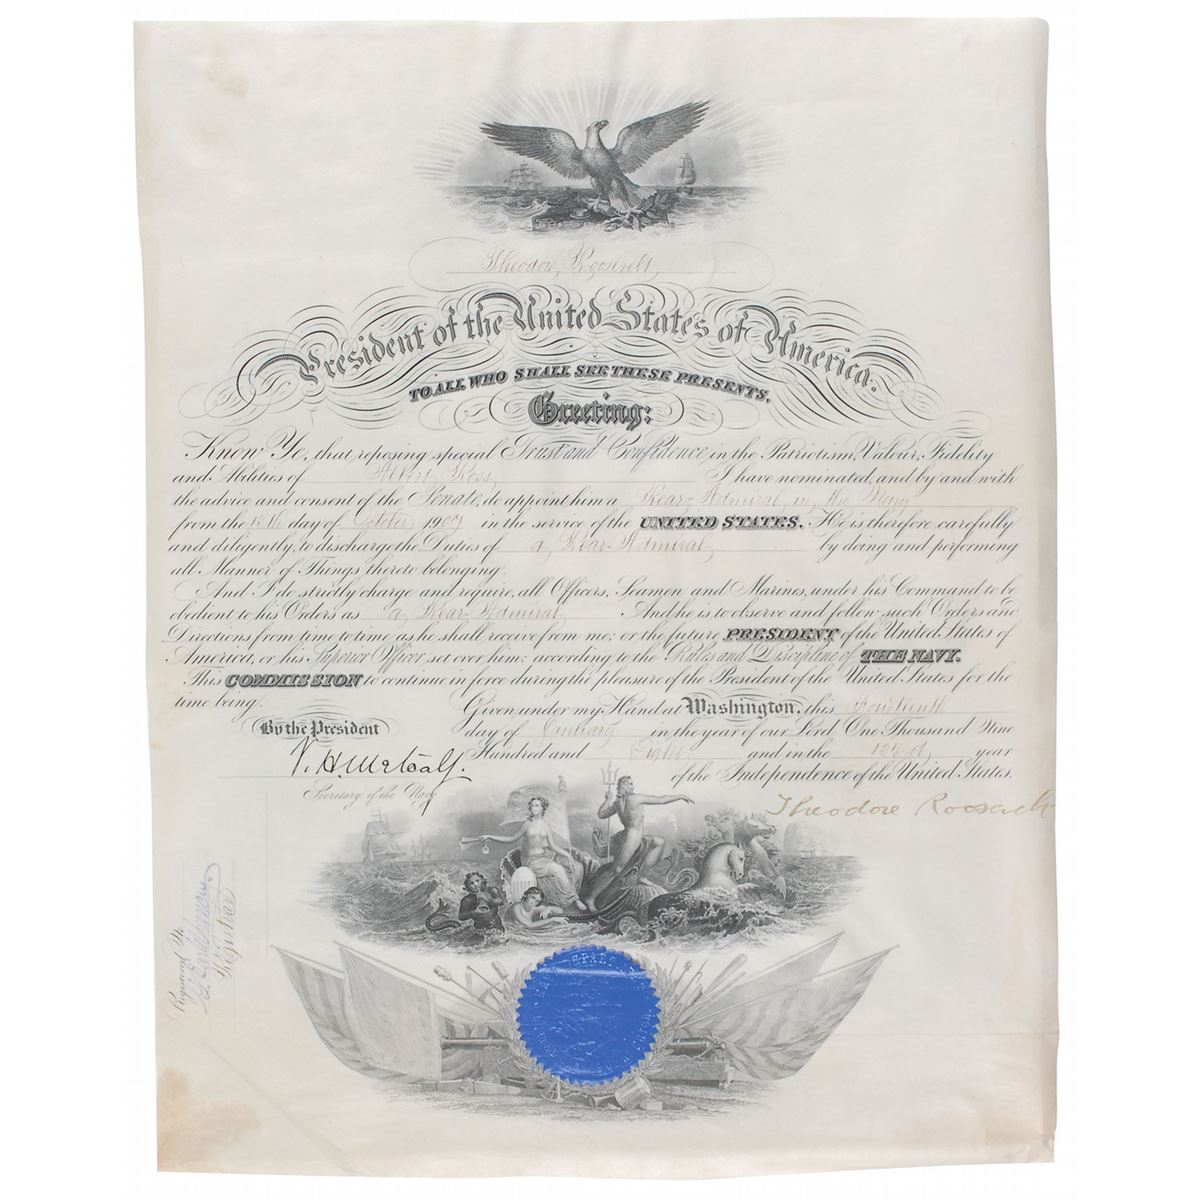 Theodore Roosevelt,
President of the United States of America.
TO ALL WHO SHALL SEE THESE PRESENTS,
Greeting:
Know Ye, that reposing special Trust and Confidence, in the Patriotism, Valour, Fidelity
and Abilities of Albert Ross, I have nominated, and by and with
the advice and consent of the Senate, do appoint him a Rear-Admiral in the Navy
from the day of October 1907 in the service of the UNITED STATES. He is therefore carefully
and diligently, to discharge the Duties of a Rear-Admiral, by doing and performing
all Manner of Things thereto belonging.
And I do strictly charge and require, all Officers, Seamen and Marines, under his Command to be
obedient to his Orders as a Rear-Admiral And he is to observe and follow such Orders and
Directions from time to time as he shall receive from me; or the future PRESIDENT of the United States of
America, or his Superior Officer set over him; according to the Rules and Discipline of THE NAVY.
This COMMISSION to continue in force during the pleasure of the President of the United States for the
time being.
Given, under my Hand at Washington, this Fourteenth
day of January in the year of our Lord One Thousand Nine
Hundred and Eight and in the 132nd year
of the Independence of the United States.
By the President
V. H. Metcalf.
Secretary of the Navy
Theodore Roosevelt
Registered No.
Registrar